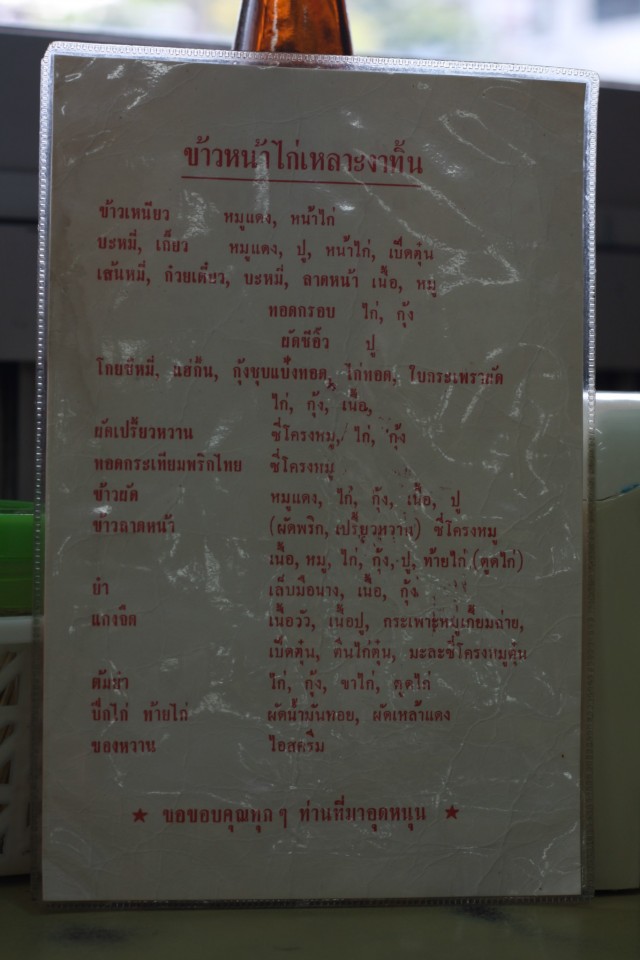 ข้าวหน้าไก่เหลาะงาทิ้น
ข้าวเหนียว หมูแดง, หน้าไก่
บะหมี่, เกี๊ยว หมูแดง, ปู, หน้าไก่, เป็ดตุ๋น
เส้นหมี่, ก๋วยเตี๋ยว, บะหมี่, ลาดหน้า เนื้อ, หมู
ทอดกรอบ ไก่, กุ้ง
ผัดซีอิ๊ว ปู
โกยซีหมี่, แฮ่กึ้น, กุ้งชุบแป้งทอด, ไก่ทอด, ใบกระเพราผัด
ไก่, กุ้ง, เนื้อ,
ผัดเปรี้ยวหวาน ซี่โครงหมู, ไก่, กุ้ง
ทอดกระเทียมพริกไทย ซี่โครงหมู
ข้าวผัด หมูแดง, ไก่, กุ้ง, เนื้อ, ปู
ข้าวลาดหน้า (ผัดพริก, เปรี้ยวหวาน) ซี่โครงหมู
เนื้อ, หมู, ไก่, กุ้ง, ปู, ท้ายไก่ (ตูดไก่)
ยำ เล็บมือนาง, เนื้อ, กุ้ง
แกงจืด เนื้อวัว, เนื้อปู, กระเพาะหมูเกี้ยมฉ่าย,
เป็ดตุ๋น, ตีนไก่ตุ๋น, มะละซี่โครงหมูตุ๋น
ต้มยำ ไก่, กุ้ง, ขาไก่, ตูดไก่
ปีกไก่ ท้ายไก่ ผัดน้ำมันหอย, ผัดเหล้าแดง
ของหวาน ไอสครีม
★ ขอขอบคุณทุก ๆ ท่านที่มาอุดหนุน ★